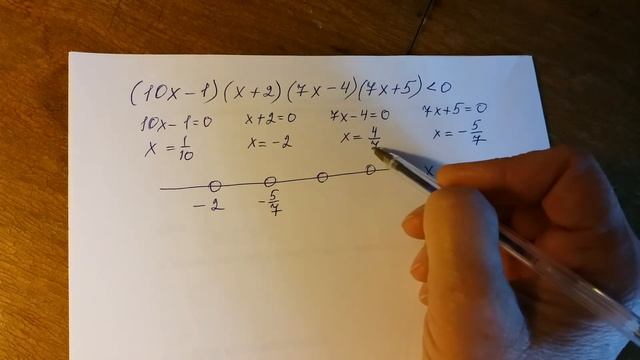 (10x-1)(x+2)(7x-4)(7x+5)<0
10x-1=0 x+2=0 7x-4=0 7x+5=0
x=1/10 x=-2 x=4/7 x=-5/7
x
-2 -5/7